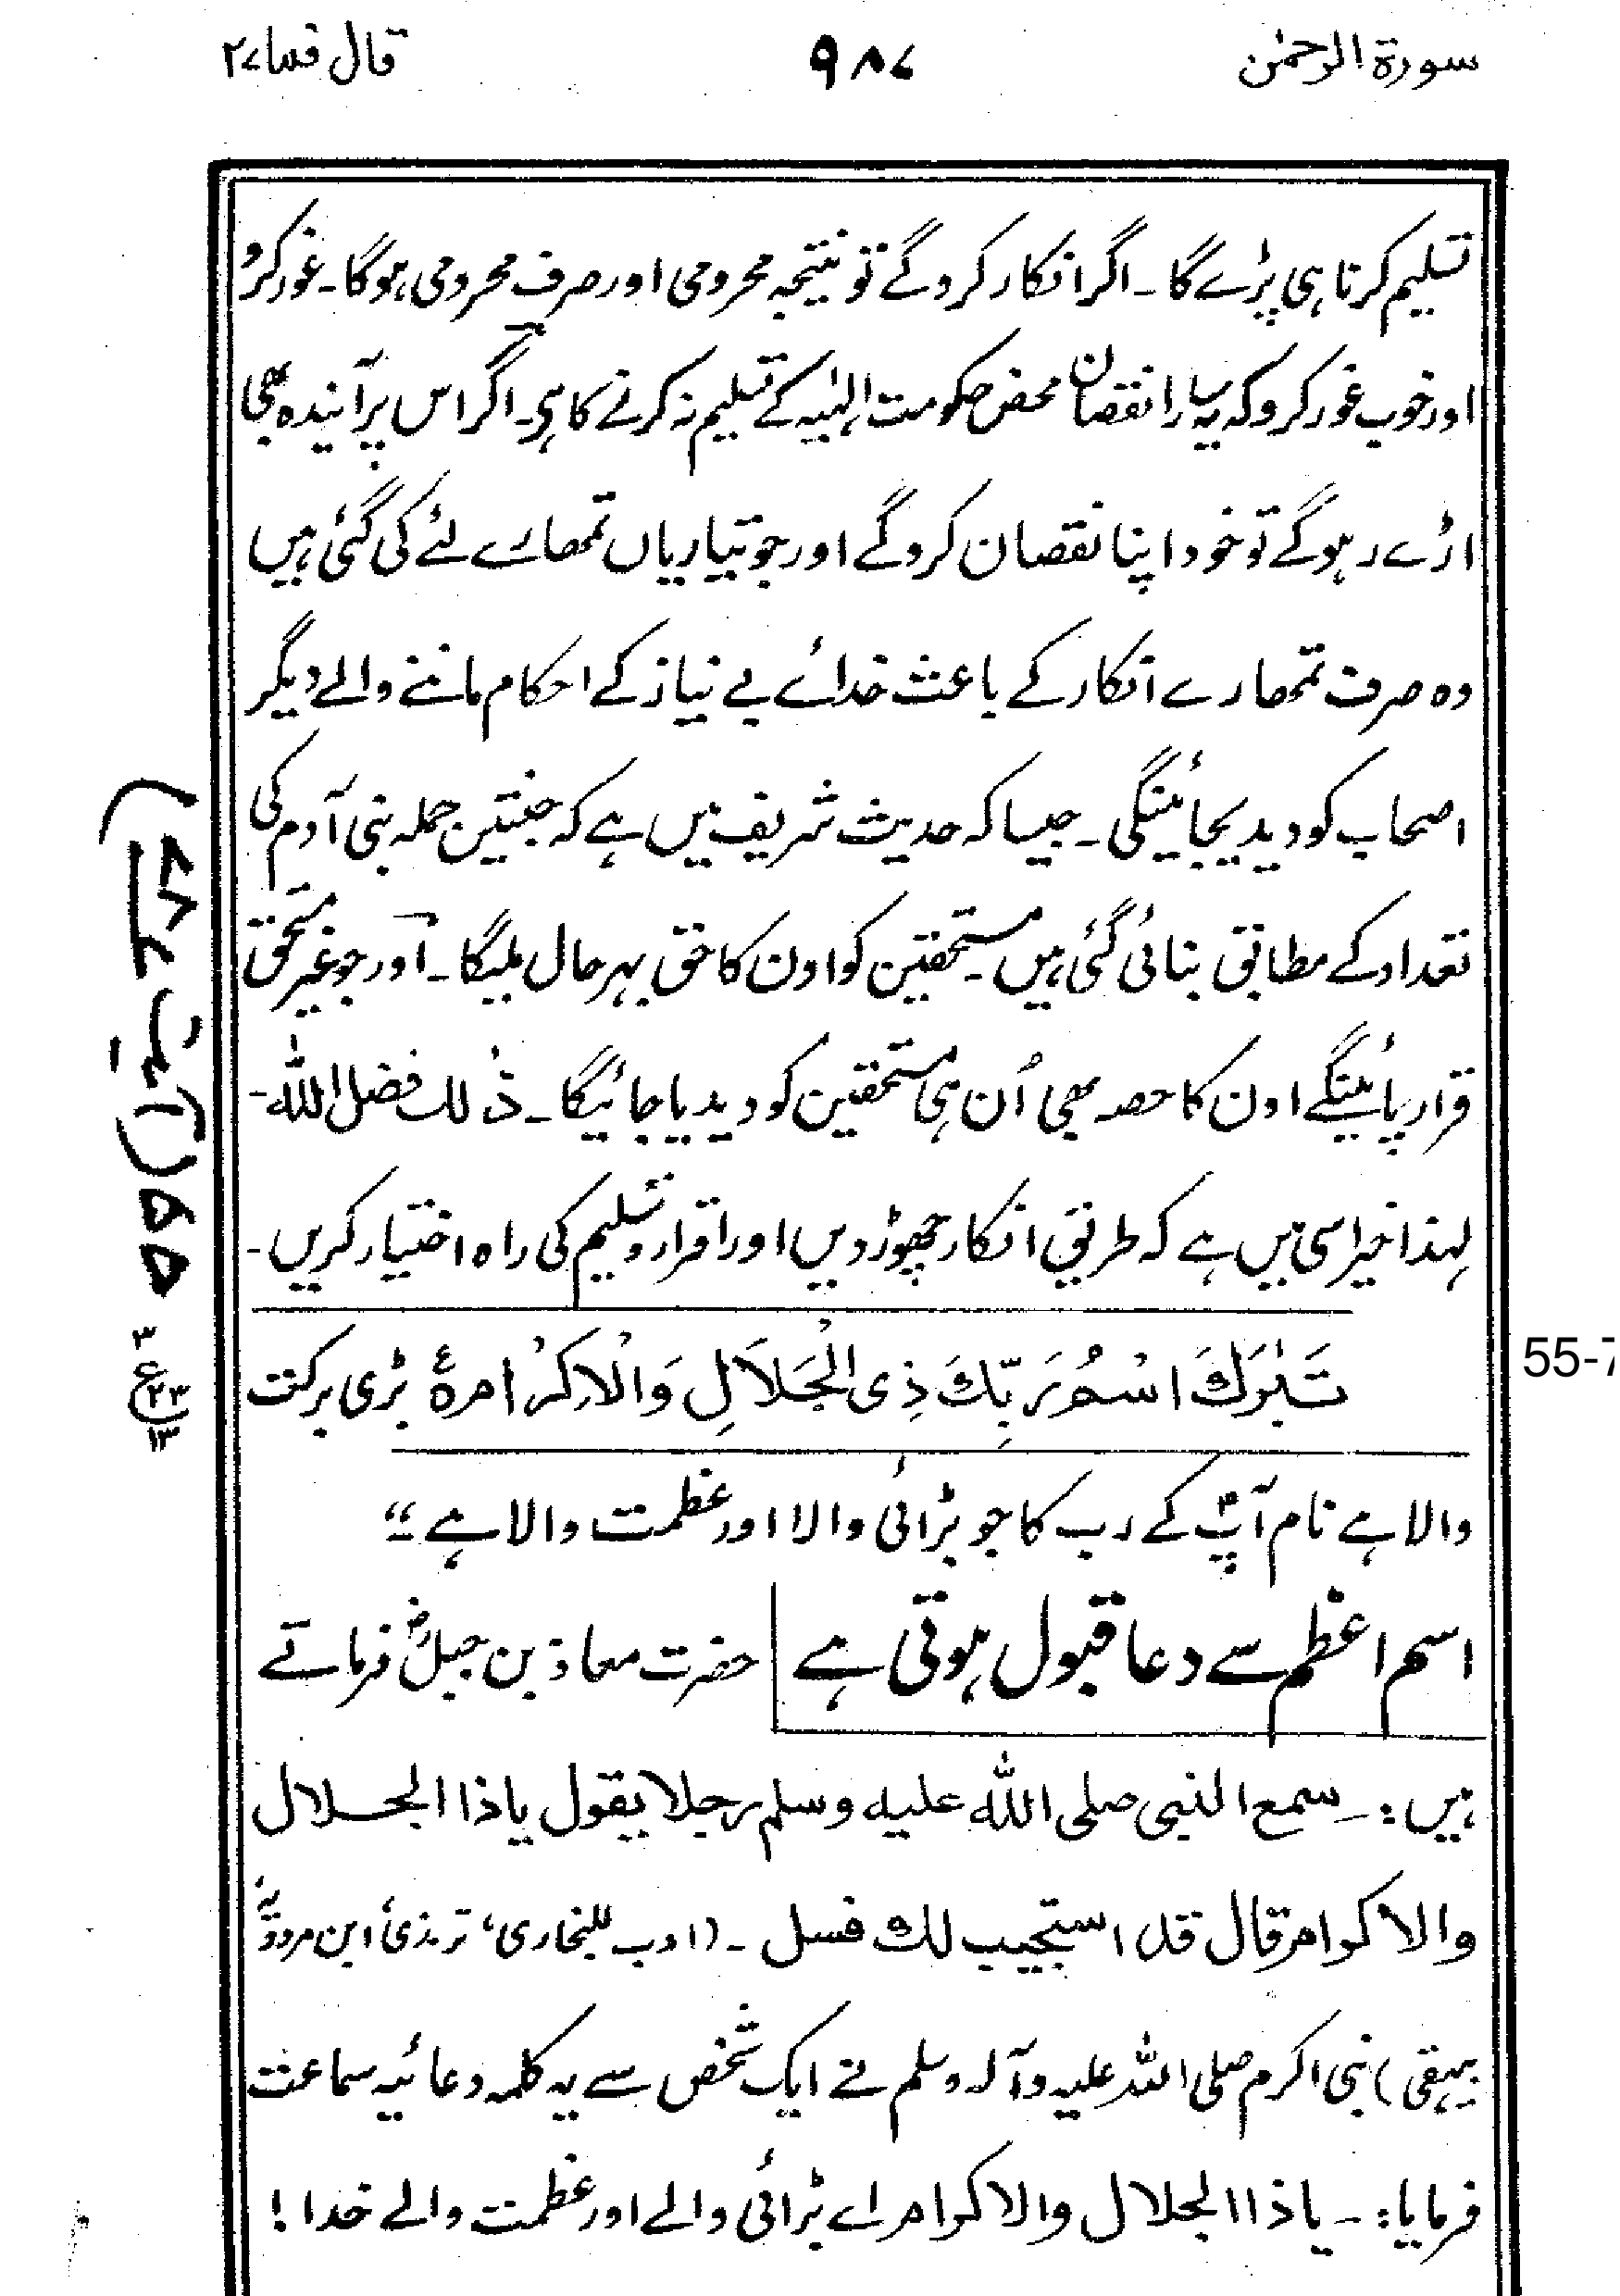 سورۃ الرحمٰن ۹۸۷ قال فما ۲۷
تسلیم کرنا ہی پڑے گا۔ اگر انکار کروگے تو نتیجہ محرومی اور صرف محرومی ہوگا۔ غور کرو
اور خوب غور کرو کہ یہ سارا نقصان محض حکومت الہٰیہ کے تسلیم نہ کرنے کا ہی۔ اگر اس پر آیندہ بھی
اڑے رہوگے تو خود اپنا نقصان کروگے اور جو تیاریاں تمھارے لئے کی گئی ہیں
وہ صرف تمھارے انکار کے باعث خدائے بے نیاز کے احکام ماننے والے دیگر
اصحاب کو دیدیجائینگی۔ جیسا کہ حدیث شریف میں ہے کہ جنتیں جملہ بنی آدم کی
تعداد کے مطابق بنائی گئی ہیں۔ مستحقین کو اون کا حق بہرحال ملیگا۔ اور جو غیر مستحق
قرار پائینگے اون کا حصہ بھی اُن ہی مستحقین کو دیدیا جائیگا۔ ذٰلك فضل اللّٰه۔
لہذا خیر اسی میں ہے کہ طریق انکار چھوڑ دیں اور اقرار و تسلیم کی راہ اختیار کریں۔
تَبٰرَكَ اسْمُ رَبِّكَ ذِی الْجَلَالِ وَالْاِكْرَامِ ہٗ بڑی برکت
55-7
والا ہے نام آپؐ کے رب کا جو بڑائی والا اور عظمت والا ہے"
اسم اعظم سے دعا قبول ہوتی ہے حضرت معاذ بن جبلؓ فرماتے
ہیں:۔ سمع النبی صلی اللّٰه علیه وسلم رجلا یقول یا ذا الجلال
والاکرام قال قد استجیب لك فسل۔ (ادب للبخاری، ترمذی، ابن مردویہ،
بیہقی) نبی اکرم صلی اللہ علیہ وآلہ وسلم نے ایک شخص سے یہ کلمہ دعائیہ سماعت
فرمایا:۔ یا ذا الجلال والاکرام اے بڑائی والے اور عظمت والے خدا!
۳
ع
۳۳
۱۳